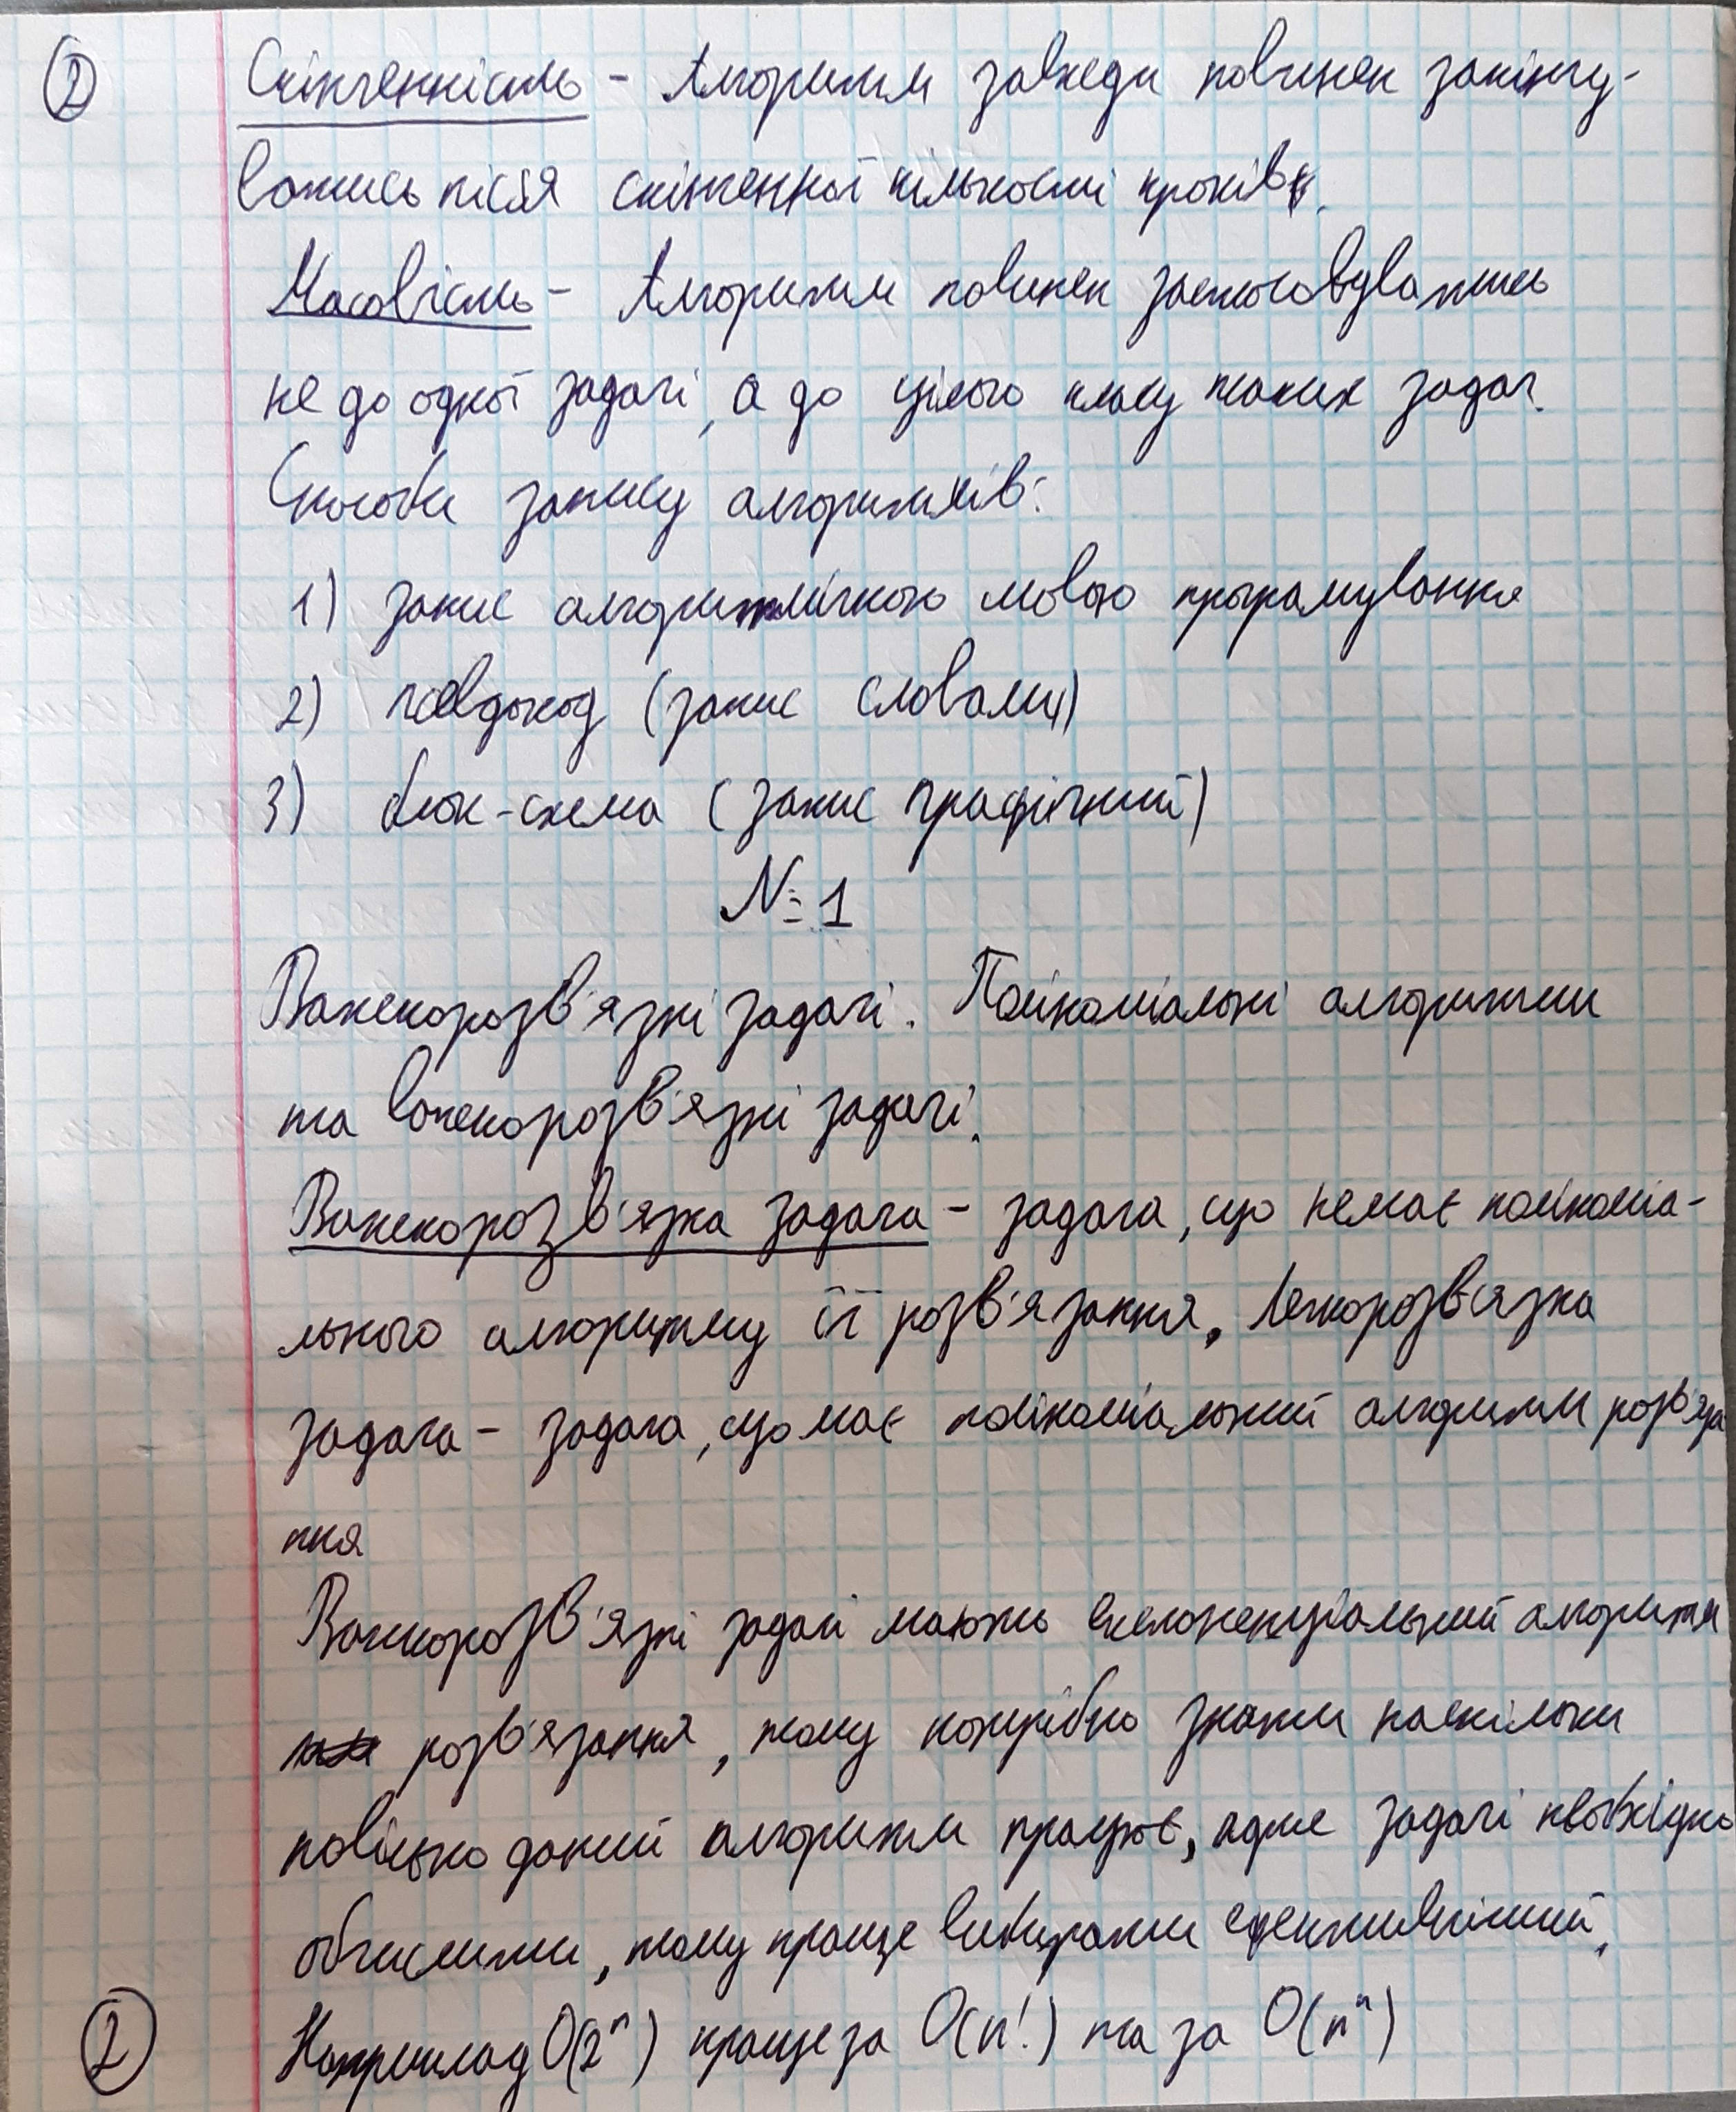 ② Скінченність – Алгоритм завжди повинен закінчу-
ватись після скінченної кількості кроків.
Масовість – Алгоритм повинен застосовуватись
не до одної задачі, а до цілого класу таких задач.
Способи запису алгоритмів:
1) запис алгоритмічною мовою програмування
2) псевдокод (запис словами)
3) блок-схема (запис графічний)
№1
Важкорозв'язні задачі. Поліноміальні алгоритми
та важкорозв'язні задачі.
Важкорозв'язна задача – задача, що немає поліноміа-
льного алгоритму її розв'язання. Легкорозв'язна
задача – задача, що має поліноміальний алгоритм розв'яза
ння
Важкорозв'язні задачі мають експоненціальний алгоритм
розв'язання, тому потрібно знати наскільки
повільно даний алгоритм працює, адже задачі необхідно
обчислити, тому краще вибирати ефективніший.
② Наприклад O(2ⁿ) краще за O(n!) та за O(nⁿ)